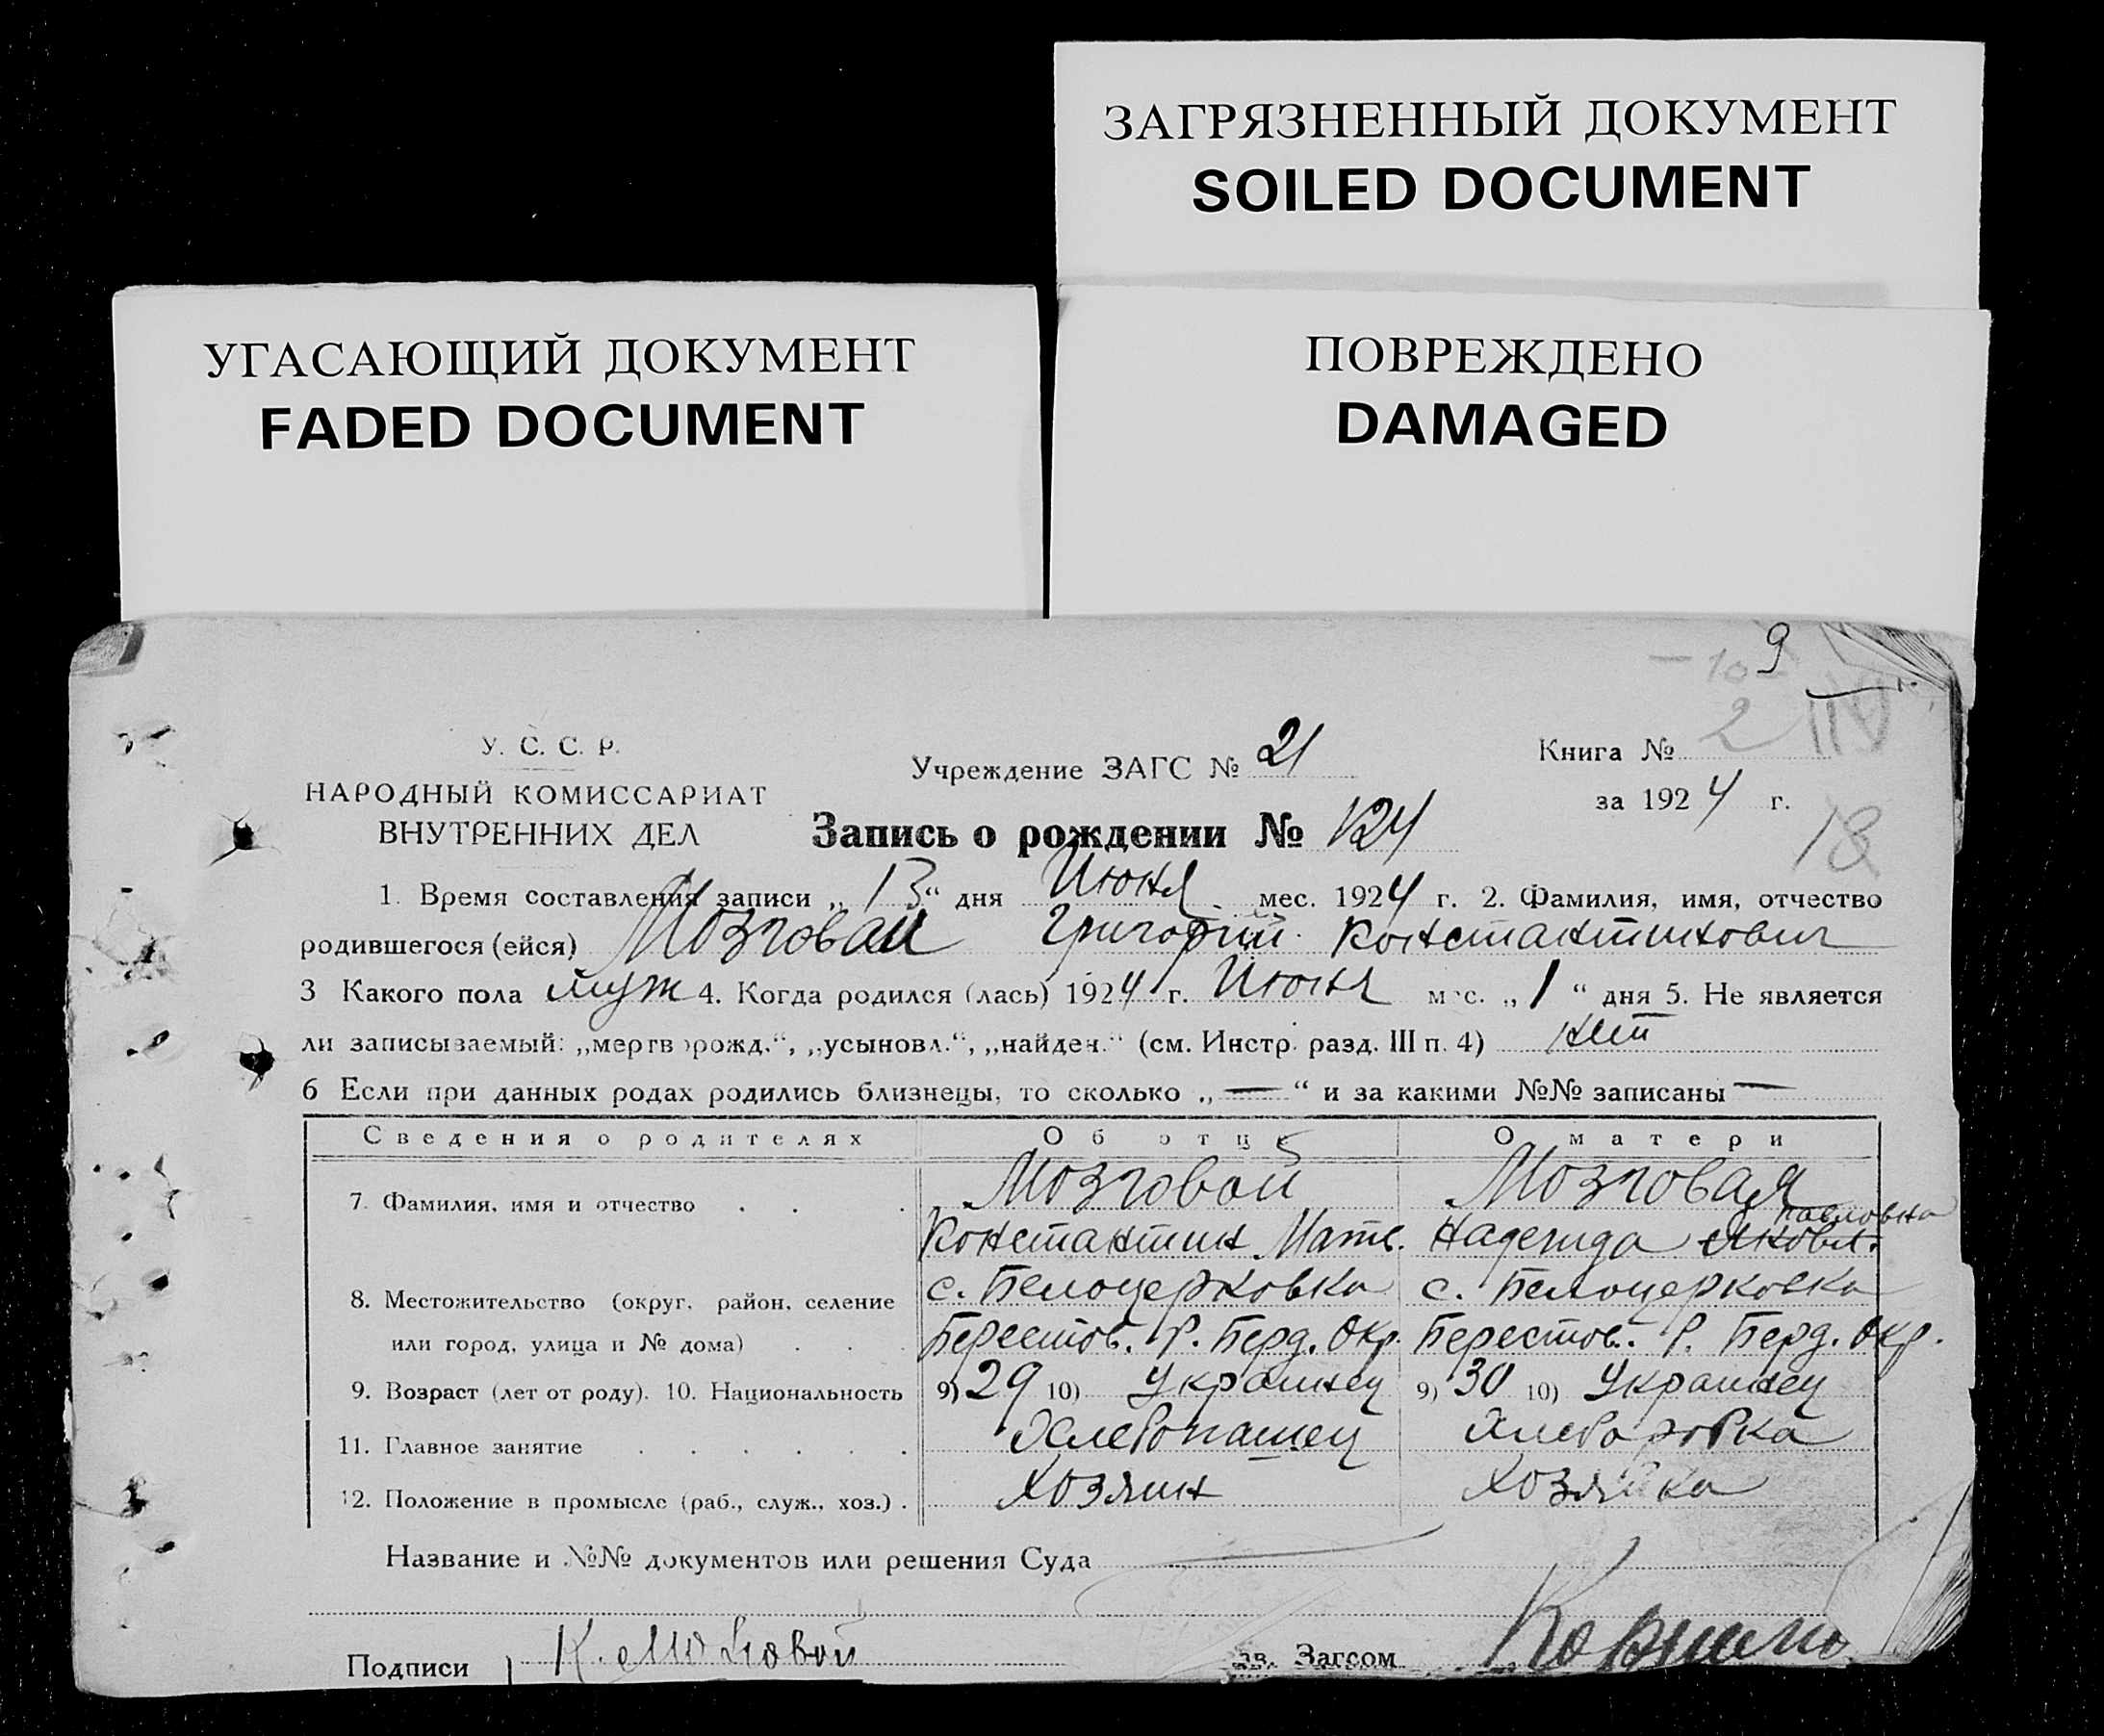 ЗАГРЯЗНЕННЫЙ ДОКУМЕНТ
SOILED DOCUMENT
УГАСАЮЩИЙ ДОКУМЕНТ
FADED DOCUMENT
ПОВРЕЖДЕНО
DAMAGED
9
10
2
У. С. С. Р.
НАРОДНЫЙ КОМИССАРИАТ
ВНУТРЕННИХ ДЕЛ
Учреждение ЗАГС № 21
Книга №
за 1924 г.
18
Запись о рождении № 124
1. Время составления записи „13“ дня Июня мес. 1924 г. 2. Фамилия, имя, отчество
родившегося (ейся) Мозговой Григорий Константинович
3 Какого пола муж 4. Когда родился (лась) 1924 г. Июня мес. „1“ дня 5. Не является
ли записываемый: „мертворожд.“, „усыновл.“, „найден.“ (см. Инстр. разд. III п. 4) нет
6 Если при данных родах родились близнецы, то сколько „—“ и за какими №№ записаны —
Сведения о родителях Об отце О матери
7. Фамилия, имя и отчество Мозговой Мозговая
Павловна
Константин Матв. Надежда Яковл.
8. Местожительство (округ, район, селение с. Белоцерковка с. Белоцерковка
или город, улица и № дома) Берестов. Р. Берд. Окр. Берестов. Р. Берд. Окр.
9. Возраст (лет от роду). 10. Национальность 9) 29 10) Украинец 9) 30 10) Украинец
11. Главное занятие Хлебопашец Хлеборобка
12. Положение в промысле (раб., служ., хоз.) Хозяин Хозяйка
Название и №№ документов или решения Суда
Подписи К. Мозговой Зав. Загсом